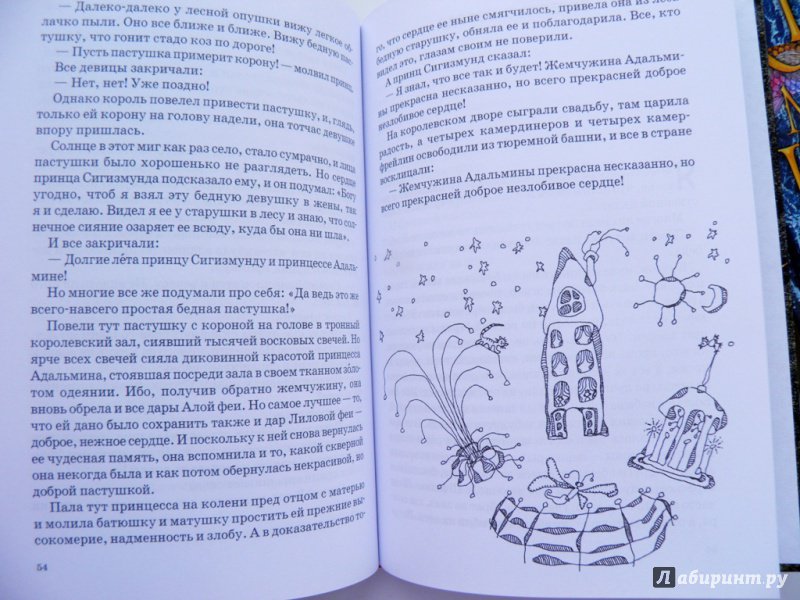 — Далеко-далеко у лесной опушки вижу легкое об-
лачко пыли. Оно все ближе и ближе. Вижу бедную пас-
тушку, что гонит стадо коз по дороге!
— Пусть пастушка примерит корону! — молвил принц.
Все девицы закричали:
— Нет, нет! Уже поздно!
Однако король повелел привести пастушку, и, глядь,
только ей корону на голову надели, она тотчас девушке
впору пришлась.
Солнце в этот миг как раз село, стало сумрачно, и лица
пастушки было хорошенько не разглядеть. Но сердце
принца Сигизмунда подсказало ему, и он подумал: «Богу
угодно, чтоб я взял эту бедную девушку в жены, так
я и сделаю. Видел я ее у старушки в лесу и знаю, что сол-
нечное сияние озаряет ее всюду, куда бы она ни шла».
И все закричали:
— Долгие ле́та принцу Сигизмунду и принцессе Адаль-
мине!
Но многие все же подумали про себя: «Да ведь это же
всего-навсего простая бедная пастушка!»
Повели тут пастушку с короной на голове в тронный
королевский зал, сиявший тысячей восковых свечей. Но
ярче всех свечей сияла диковинной красотой принцесса
Адальмина, стоявшая посреди зала в своем тканном зо́ло-
том одеянии. Ибо, получив обратно жемчужину, она
вновь обрела и все дары Алой феи. Но самое лучшее — то,
что ей дано было сохранить также и дар Лиловой феи —
доброе, нежное сердце. И поскольку к ней снова вернулась
ее чудесная память, она вспомнила и то, какой скверной
она некогда была и как потом обернулась некрасивой, но
доброй пастушкой.
Пала тут принцесса на колени пред отцом с матерью
и молила батюшку и матушку простить ей прежние вы-
сокомерие, надменность и злобу. А в доказательство то-
54
го, что сердце ее ныне смягчилось, привела она из леса
бедную старушку, обняла ее и поблагодарила. Все, кто
видел это, глазам своим не поверили.
А принц Сигизмунд сказал:
— Я знал, что все так и будет! Жемчужина Адальми-
ны прекрасна несказанно, но всего прекрасней доброе
незлобивое сердце!
На королевском дворе сыграли свадьбу, там царила
радость, а четырех камердинеров и четырех камер-
фрейлин освободили из тюремной башни, и все в стране
восклицали:
— Жемчужина Адальмины прекрасна несказанно, но
всего прекрасней доброе незлобивое сердце!
Лабиринт.ру